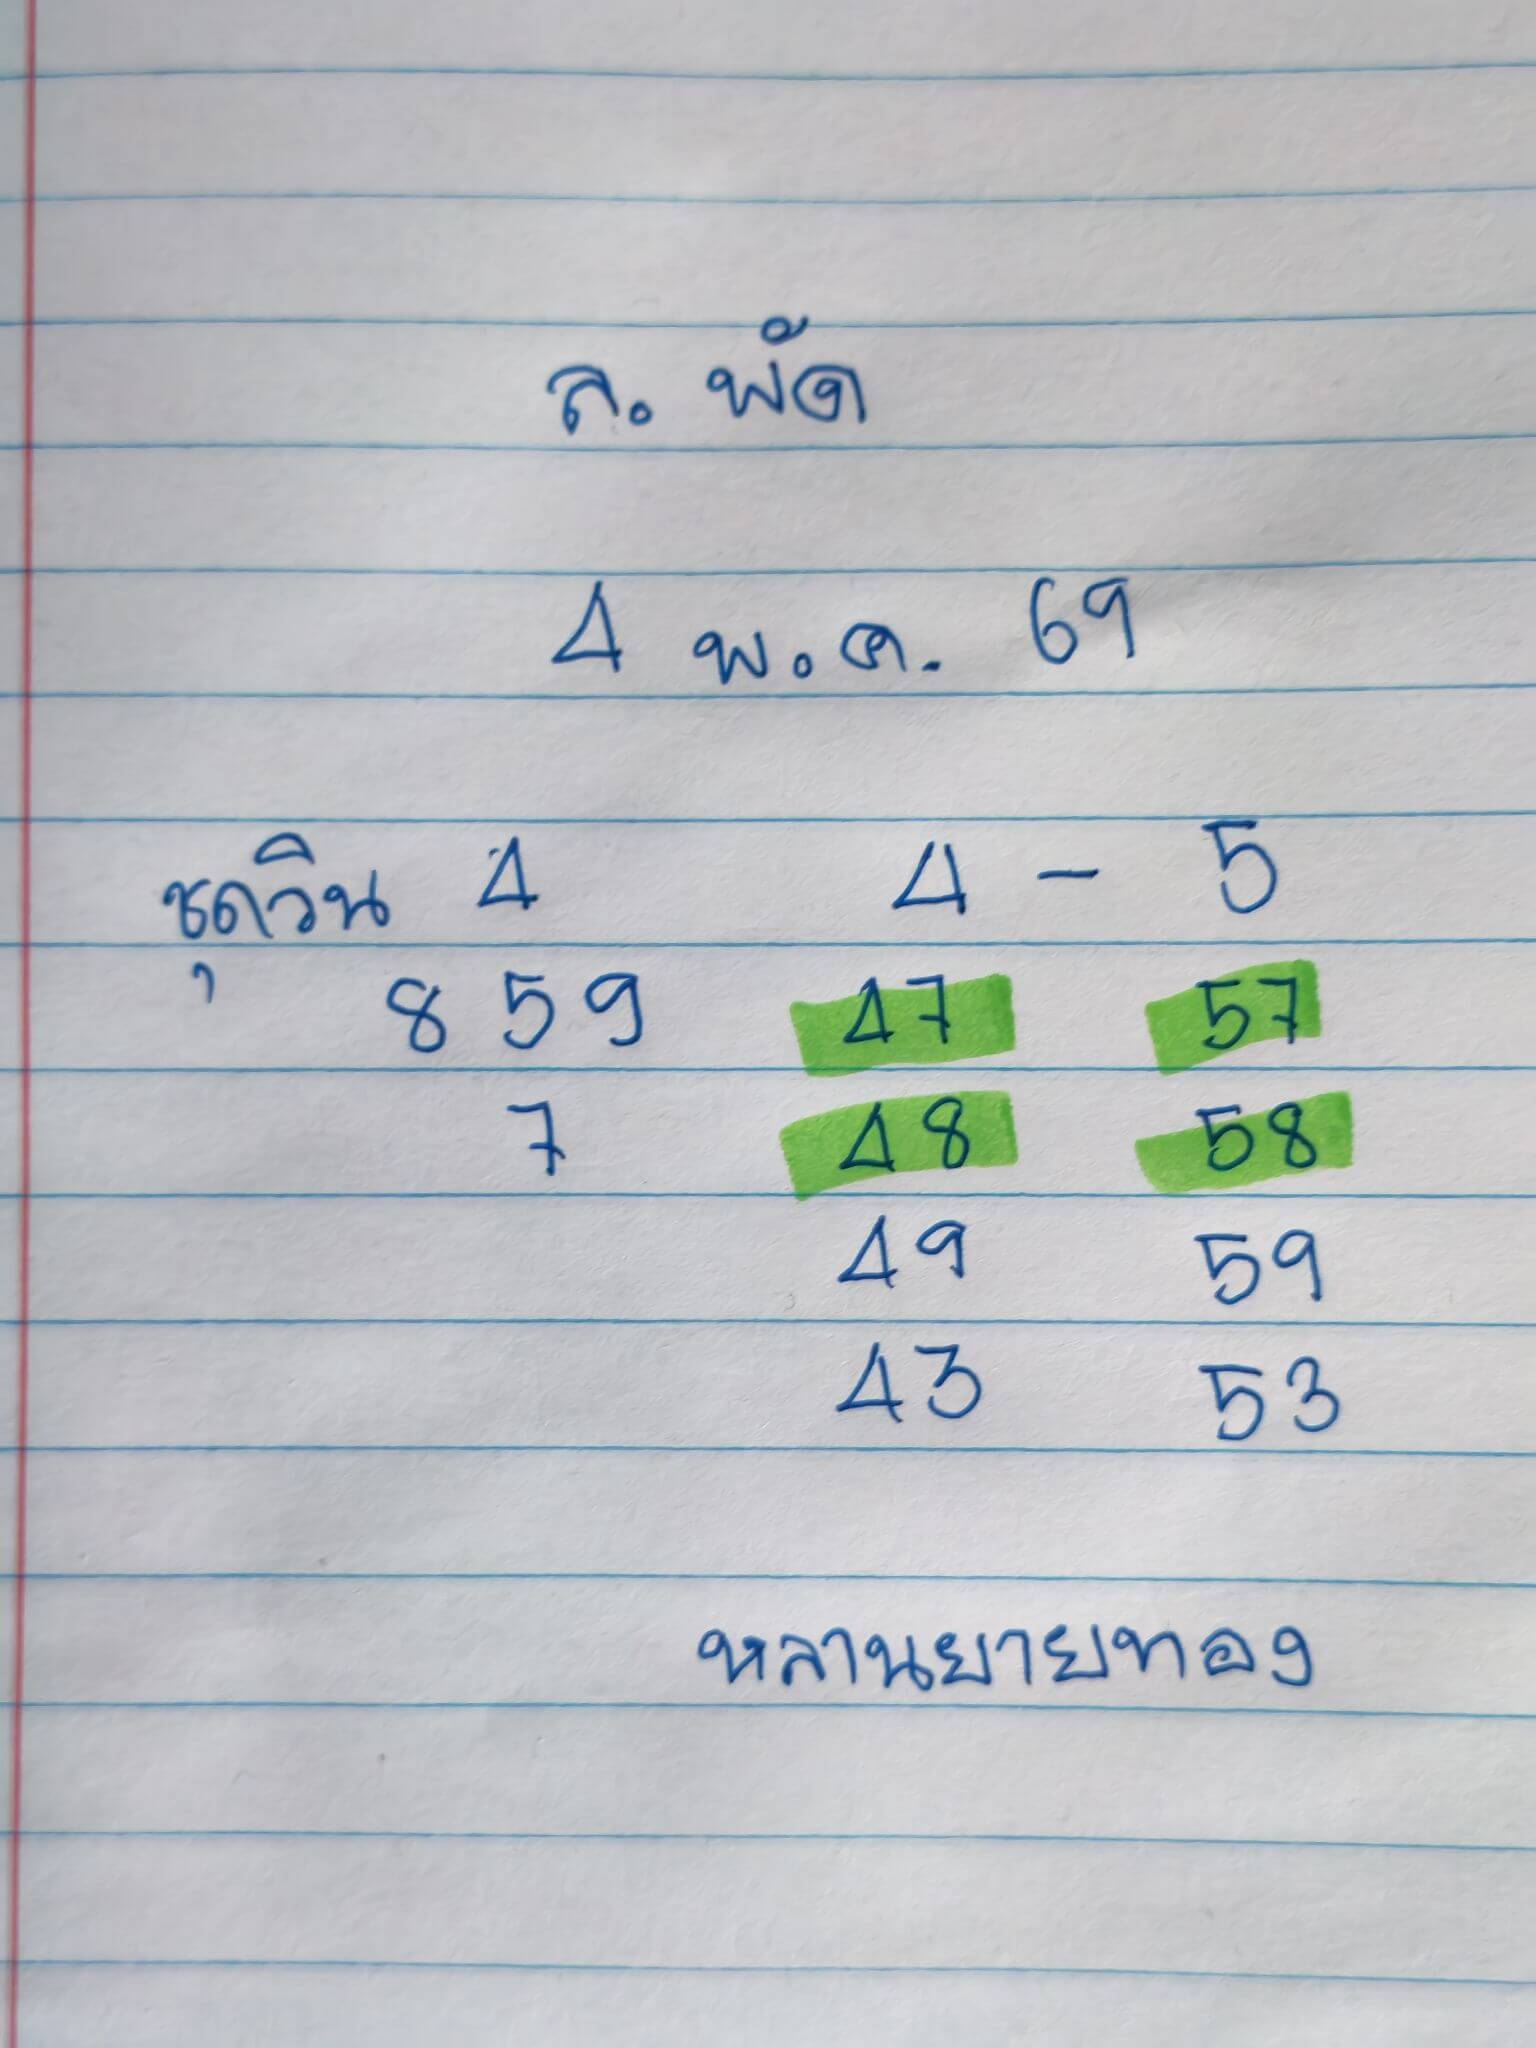 ล. พัด
4 พ.ค. 69
ชุดวิน 4 4 - 5
859 47 57
7 48 58
49 59
43 53
หลานยายทอง